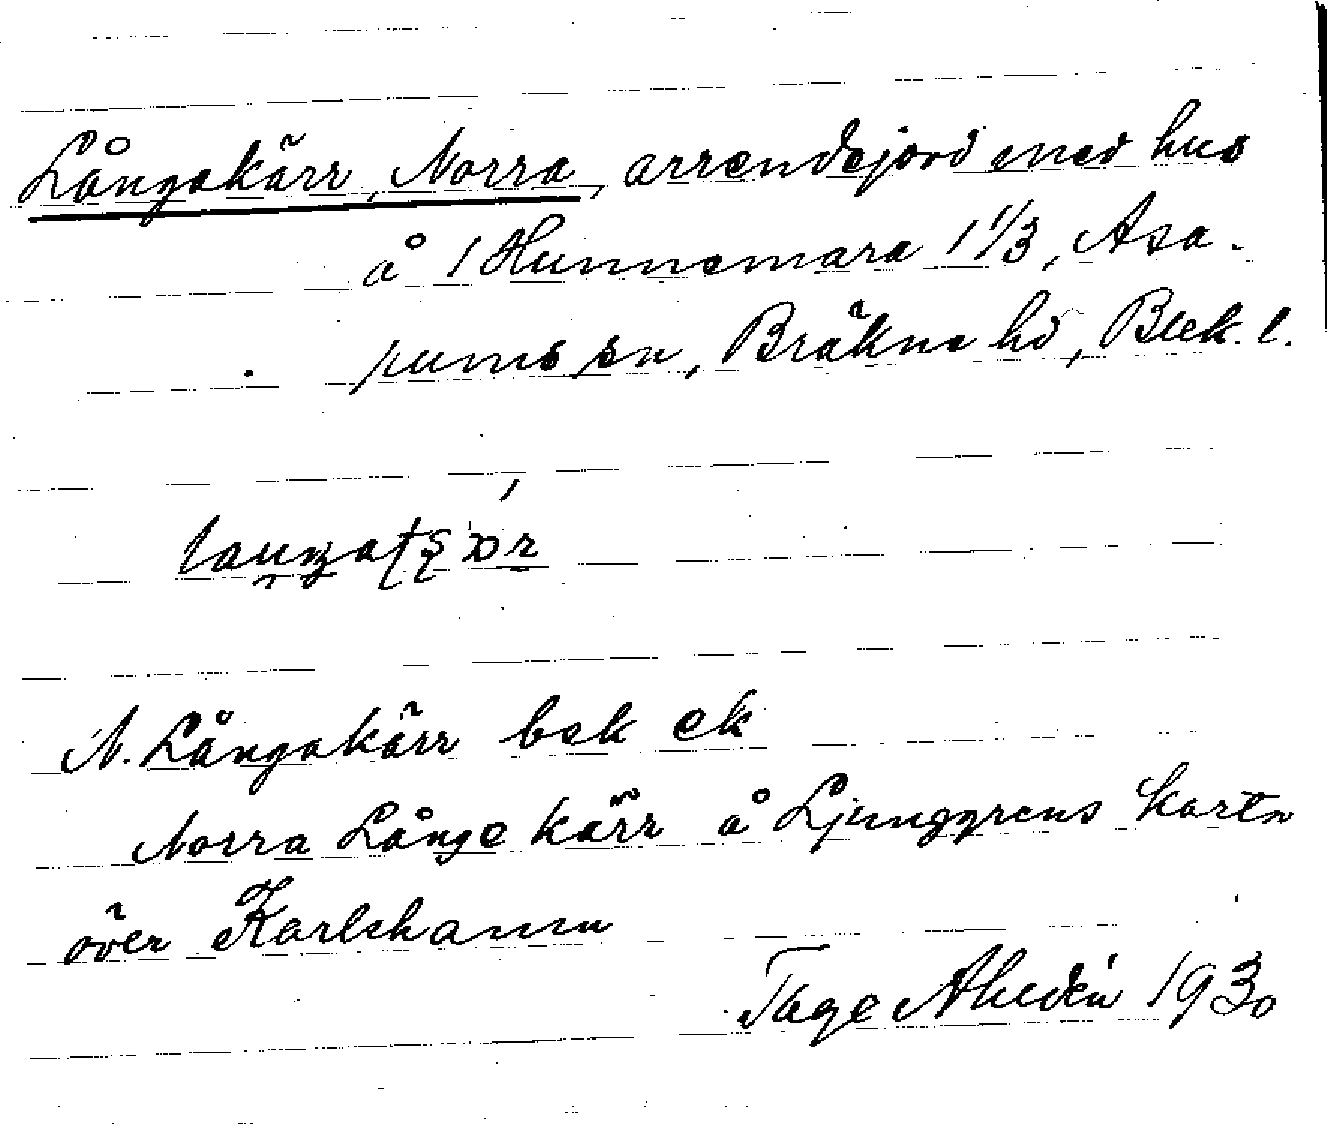 Långakärr, Norra, arrendejord med hus
å 1 Hunnemara 1 1/3, Asa-
rums sn, Bräkne hd, Blek. l.
N. Långakärr bek ek
Norra Långe kärr å Ljunggrens karta
över Karlshamn
Tage Ahldén 1930